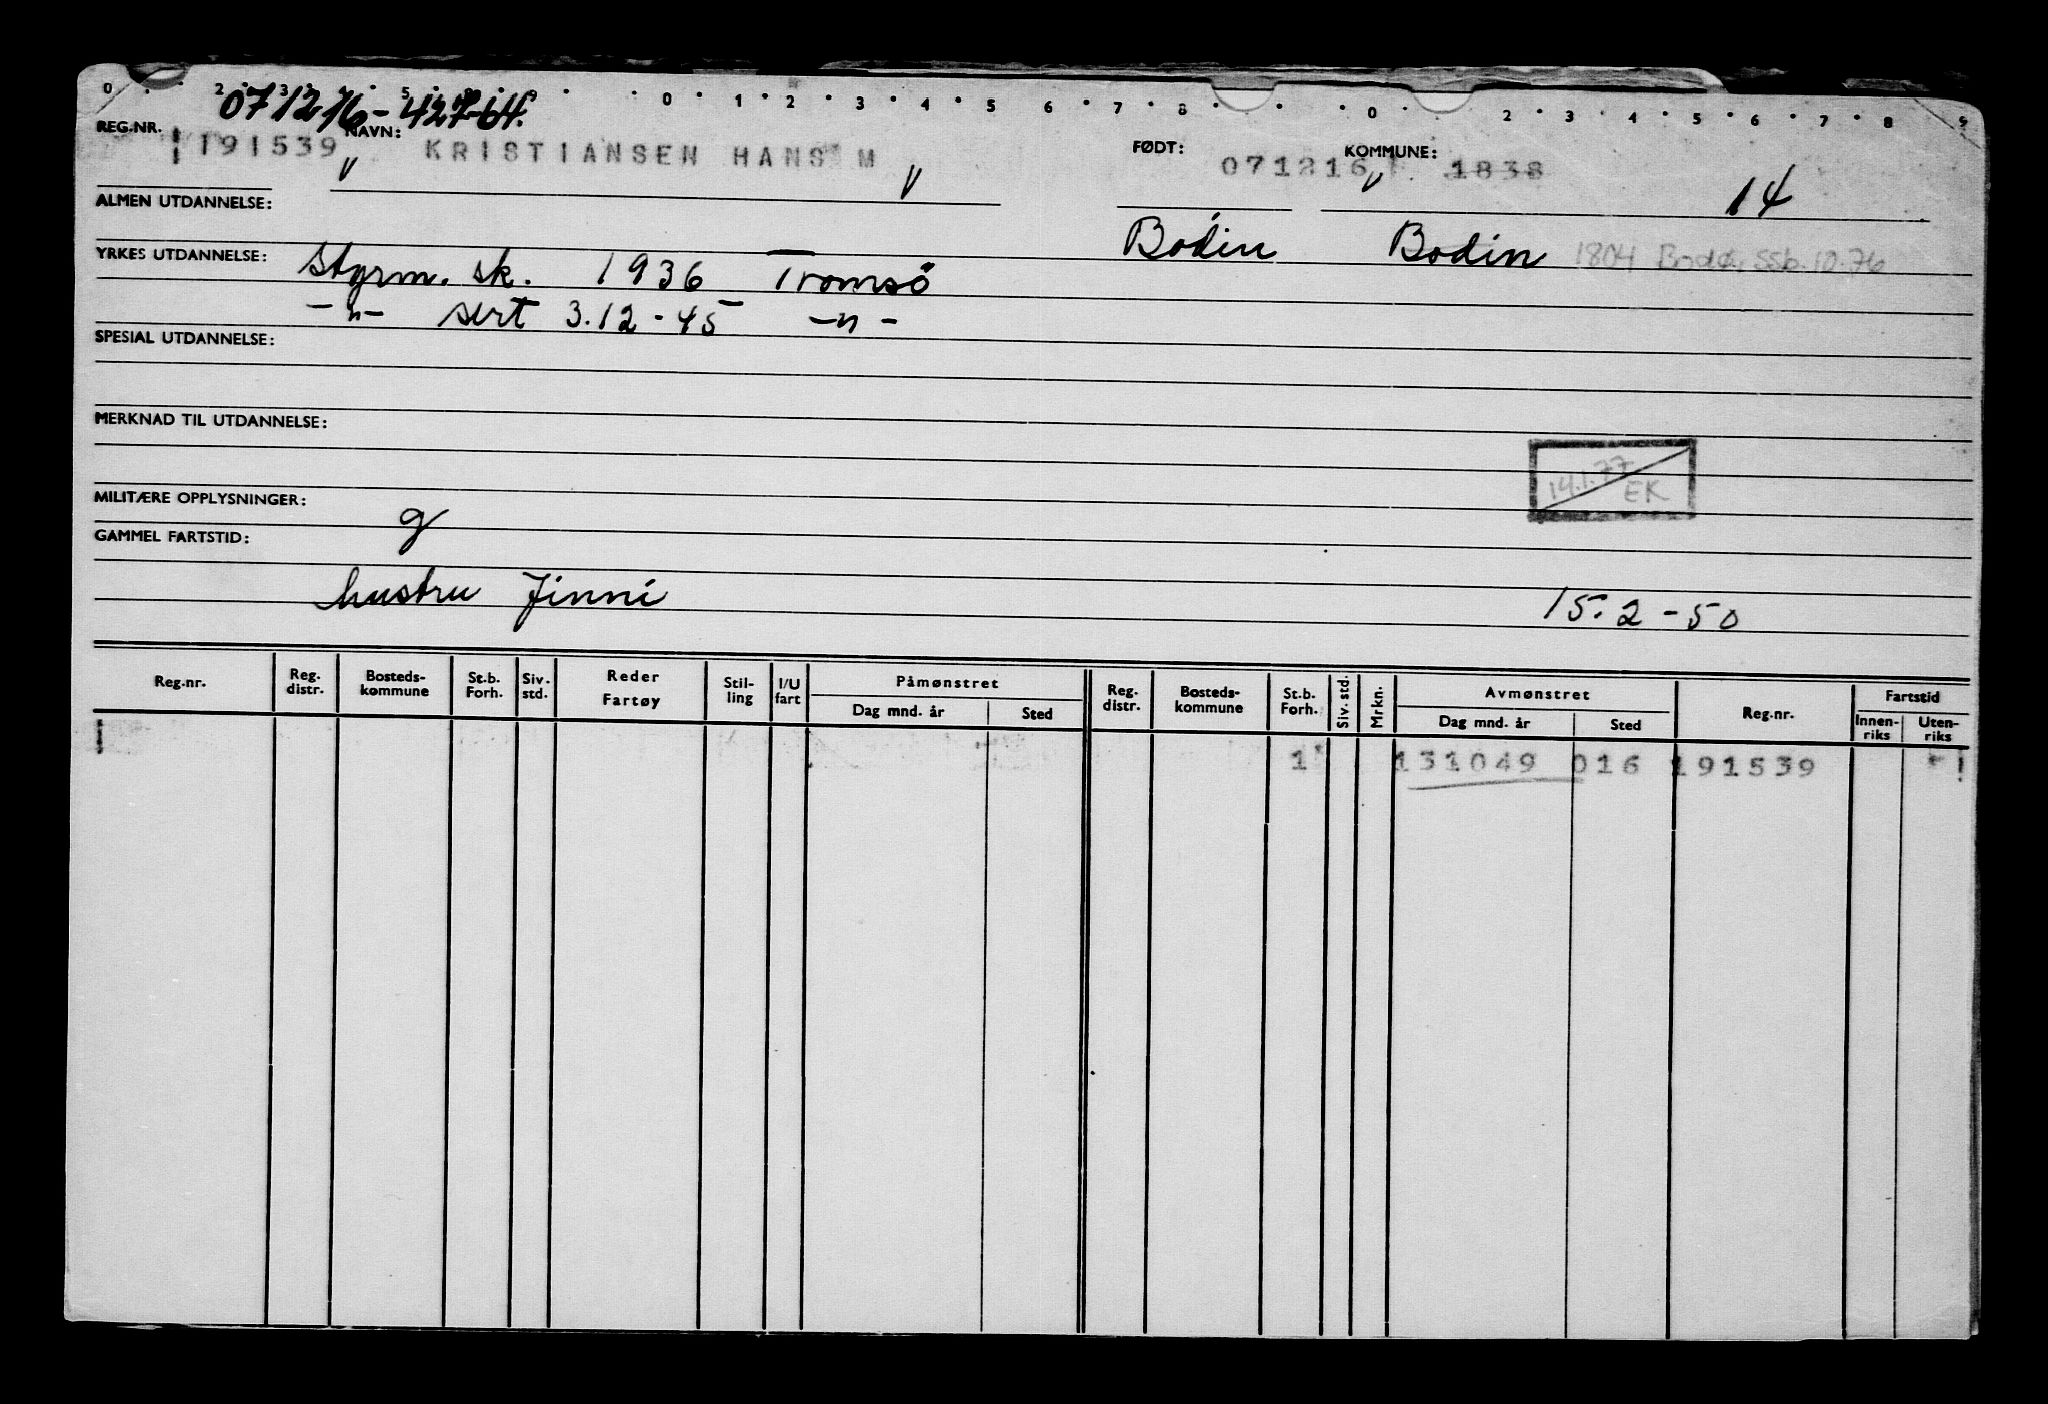 0 2 3 5 9 0 1 2 3 4 5 6 7 8 0 2 3 4 5 6 7 8 9
071216-42764.
REG.NR. NAVN: FØDT: KOMMUNE:
191539 KRISTIANSEN HANS M 071216 1838
14
ALMEN UTDANNELSE:
Bodin Bodin 1804 Bodø, ssb. 10.76
YRKES UTDANNELSE: Styrm. sk. 1936 Tromsö
-"- sert 3.12-45 -"-
SPESIAL UTDANNELSE:
MERKNAD TIL UTDANNELSE:
14.1.77 EK
MILITÆRE OPPLYSNINGER: g
GAMMEL FARTSTID:
hustru Jinni 15.2-50
Reg.nr. Reg. distr. Bosteds-kommune St.b. Forh. Siv. std. Reder Fartøy Stil-ling I/U fart Påmønstret Dag mnd. år Sted Reg. distr. Bosteds-kommune St.b. Forh. Siv. std. Mrkn. Avmønstret Dag mnd. år Sted Reg.nr. Fartstid Innen-riks Uten-riks
1 131049 016 191539